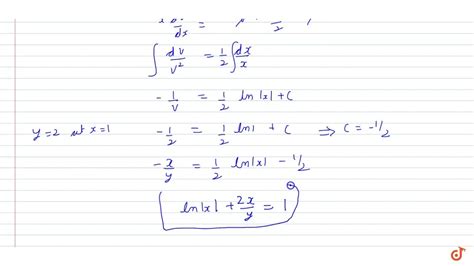 dv/dx =
∫ dv/v² = 1/2 ∫ dx/x
- 1/v = 1/2 ln|x| + C
y=2 at x=1 - 1/2 = 1/2 ln1 + C ⇒ C = -1/2
- x/y = 1/2 ln|x| - 1/2
ln|x| + 2x/y = 1